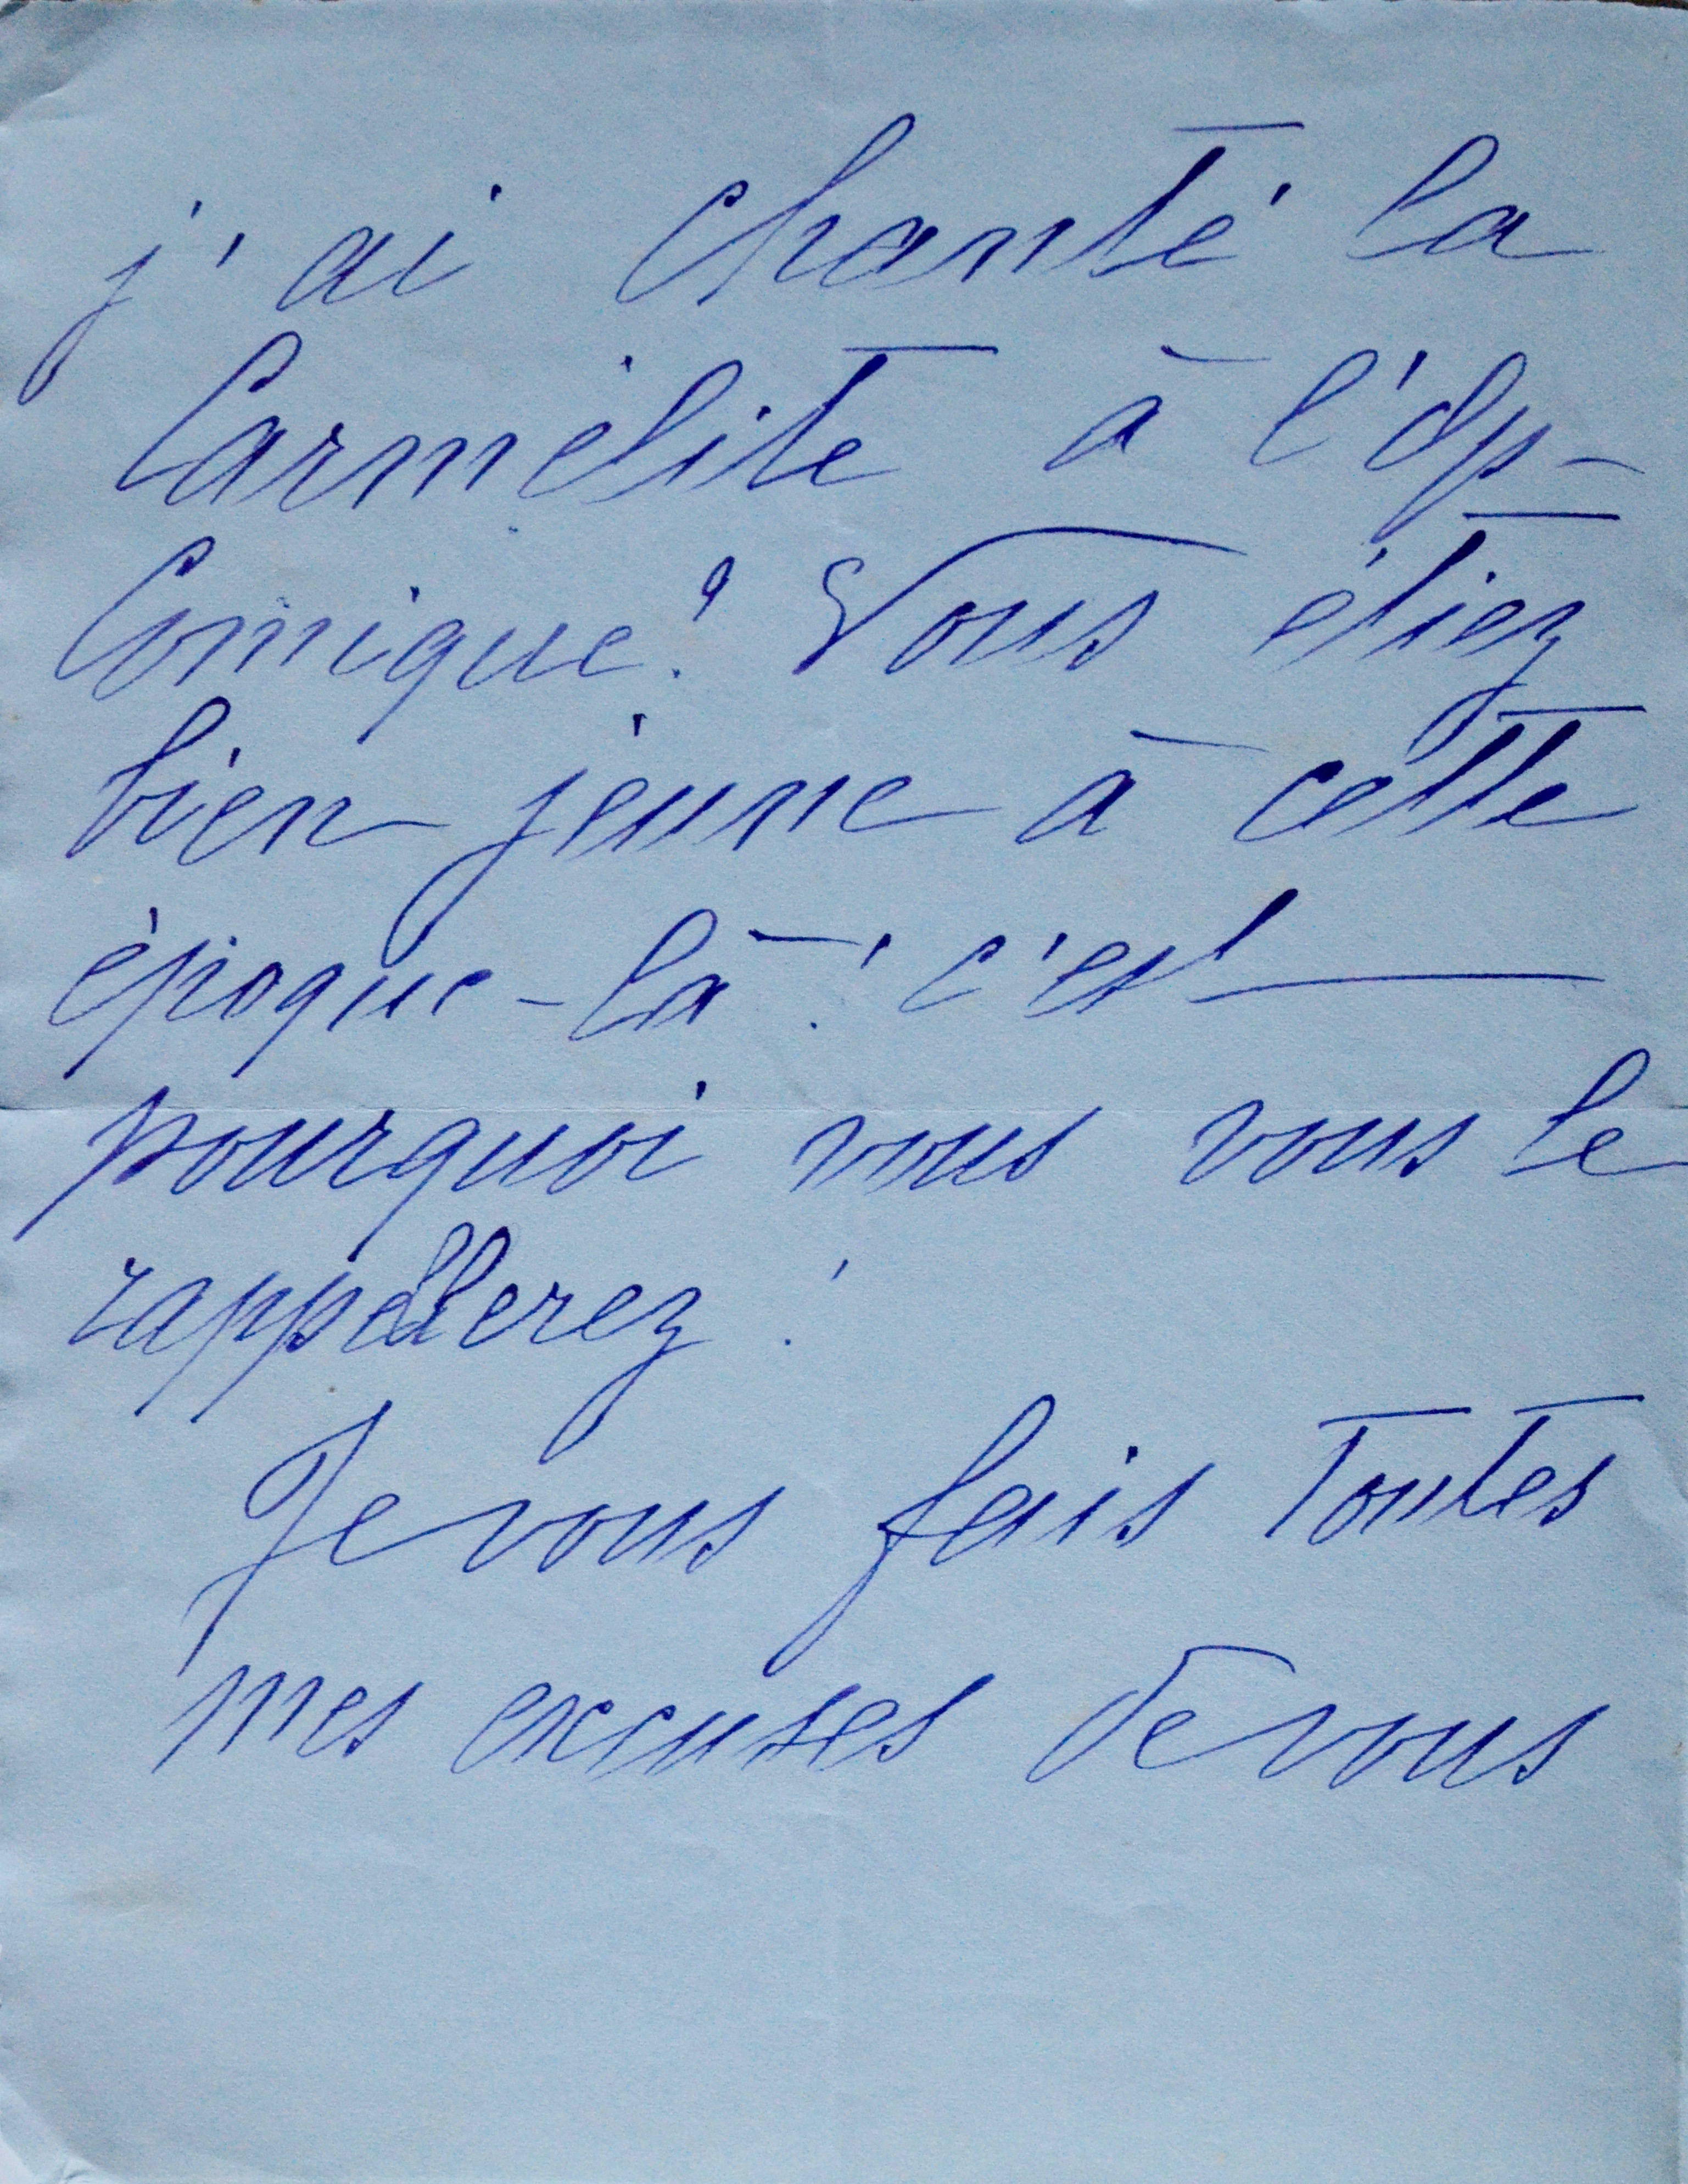 j'ai chanté la
Carmélite à l'Op-
Comique? Vous étiez
bien jeune à cette
époque-là! c'est
pourquoi vous vous le
rappellerez!
Je vous fais toutes
mes excuses de vous